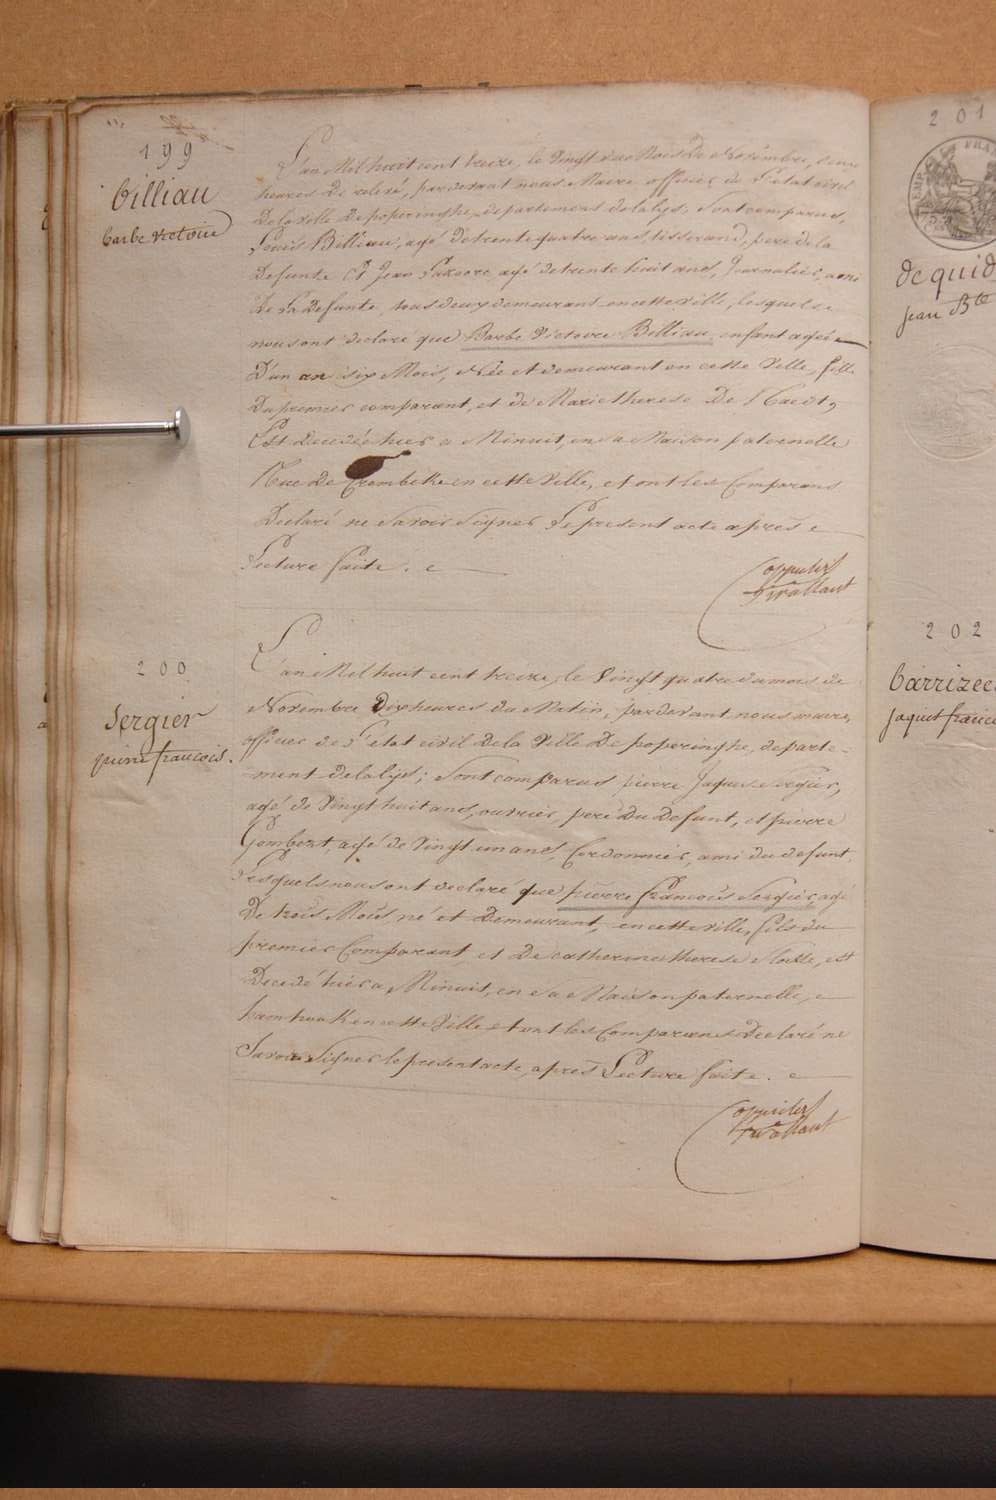 199
Billiau
barbe victoire
L'an Mil huit cent treize, le vingt du Mois De Novembre,
heures De relevé, pardevant nous Maire officier de l'état civil
De la ville De poperinghe, departement delalys, Sont comparus,
Louis Billiau, agé De trente quatre ans, tisserand, pere de la
Defunte et Jean agé de trente huit ans, Journalier, ami
De La Defunte, tous deux demeurant en cette Ville, lesquels
nous ont declaré que Barbe Victoire Billiau, enfant agée
D'un an six Mois, Née et demeurant en cette Ville, fille
Du premier comparant, et de Marie therese De
Est Decedée hier a Minuit, en sa Maison paternelle
Rue De Crombeke en cette Ville, et ont les Comparans
Declaré ne Savoir Signer Le present acte après
Lecture faite.
200
Sergier
pierre francois.
L'an Mil huit cent treize, le Vingt quatre du mois de
Novembre Dix heures du Matin, pardevant nous maire,
officier de l'état civil De la Ville De poperinghe, departe-
ment delalys; Sont comparus pierre Jaques Sergier,
agé de Vingt huit ans, ouvrier, pere Du Defunt, et pierre
Gombert, agé de Vingt un ans, Cordonnier, ami du defunt,
Lesquels nous ont declaré que pierre François Sergier, agé
De trois Mois, né et Demeurant, en cette ville, fils du
premier Comparant, et De catherine therese est
Decedé hier a Minuit, en sa Maison paternelle,
en cette Ville et ont les Comparans Declaré ne
Savoir Signer le present acte, après Lecture faite.
201
dequid
jean Bte
202
barrizee
jaques franco